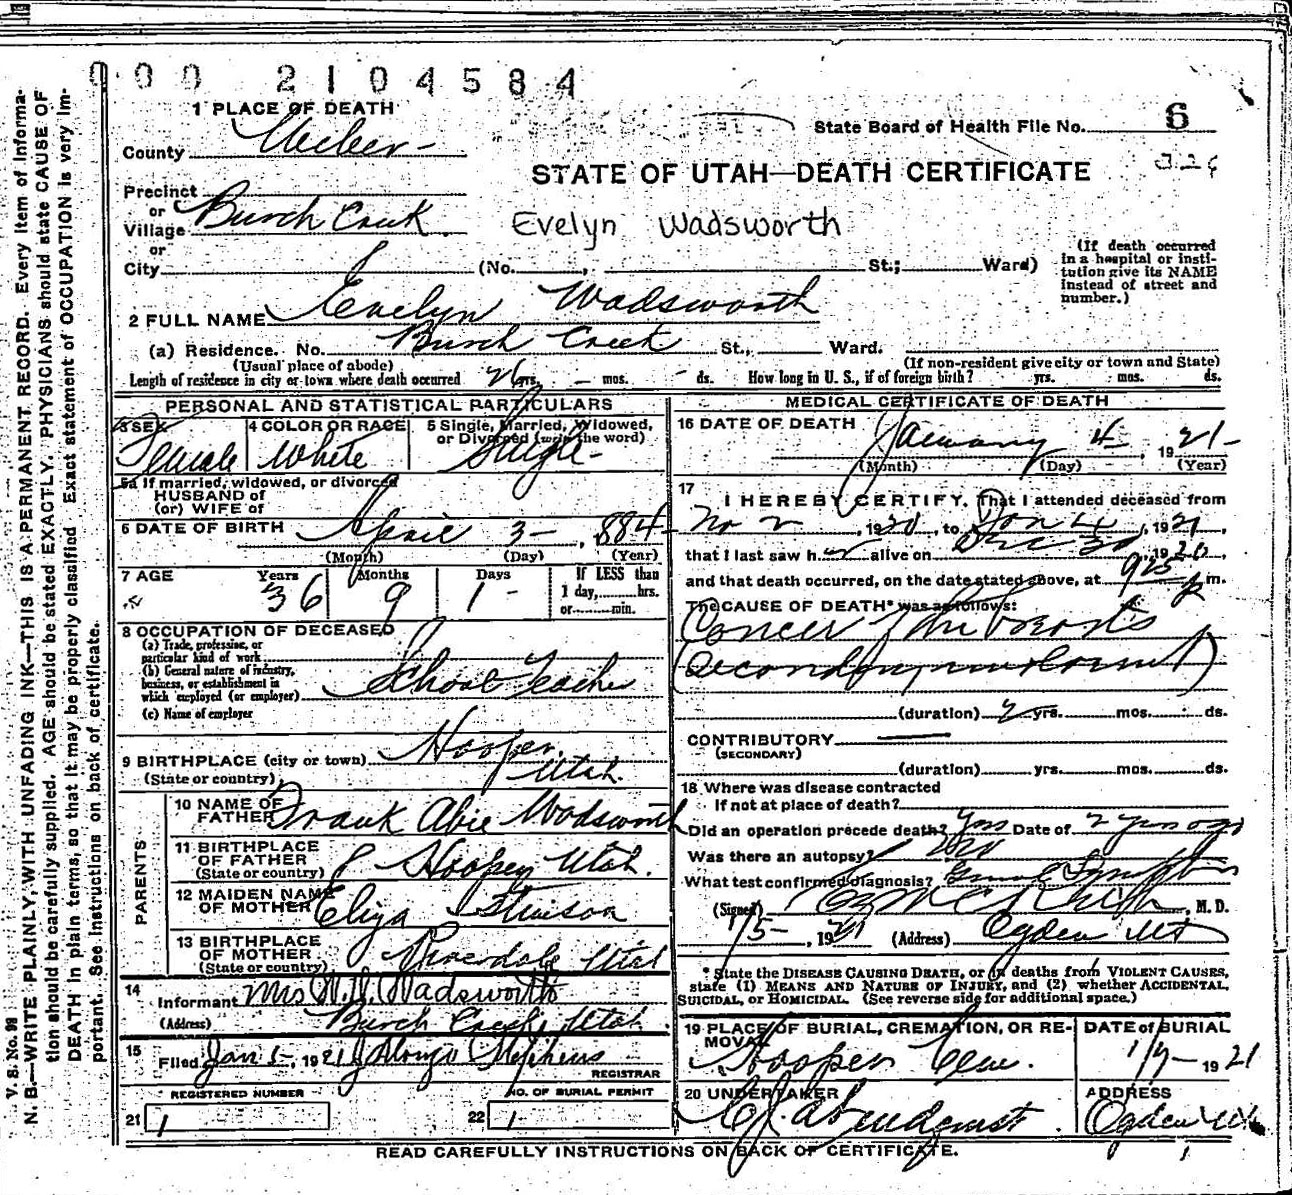 000 2104584
1 PLACE OF DEATH
County Weber
State Board of Health File No. 6
326
STATE OF UTAH—DEATH CERTIFICATE
Precinct
or
Village Burch Creek
Evelyn Wadsworth
or
City (No. , St.; Ward)
(If death occurred in a hospital or institution give its NAME instead of street and number.)
2 FULL NAME Evelyn Wadsworth
(a) Residence. No. Burch Creek St., Ward.
(Usual place of abode) (If non-resident give city or town and State)
Length of residence in city or town where death occurred 26 yrs. — mos. ds. How long in U. S., if of foreign birth? yrs. mos. ds.
PERSONAL AND STATISTICAL PARTICULARS
3 SEX Female
4 COLOR OR RACE White
5 Single, Married, Widowed, or Divorced (write the word) Single
5a If married, widowed, or divorced
HUSBAND of
(or) WIFE of
6 DATE OF BIRTH April 3 - , 884
(Month) (Day) (Year)
7 AGE Years 36 Months 9 Days 1 -
If LESS than
1 day, hrs.
or min.
8 OCCUPATION OF DECEASED
(a) Trade, profession, or
particular kind of work
(b) General nature of industry,
business, or establishment in
which employed (or employer) School Teacher
(c) Name of employer
9 BIRTHPLACE (city or town) Hooper,
(State or country) Utah.
PARENTS
10 NAME OF FATHER Frank Abie Wadsworth
11 BIRTHPLACE OF FATHER
(State or country) Hooper Utah.
12 MAIDEN NAME OF MOTHER Eliza
13 BIRTHPLACE OF MOTHER
(State or country) Riverdale Utah
14 Informant Mrs Wadsworth
(Address) Burch Creek, Utah.
15 Filed Jan 5-, 1921 Alonzo Stephens
REGISTRAR
REGISTERED NUMBER
21 1
NO. OF BURIAL PERMIT
22 1
MEDICAL CERTIFICATE OF DEATH
16 DATE OF DEATH January 4 , 1921-
(Month) (Day) (Year)
17 I HEREBY CERTIFY, That I attended deceased from
, 1920, to Jan 4, 1921,
that I last saw her alive on Dec 30, 1920,
and that death occurred, on the date stated above, at 925 p m.
The CAUSE OF DEATH* was as follows:
Cancer of the breasts
(Secondary involvement)
(duration) 2 yrs. mos. ds.
CONTRIBUTORY —
(SECONDARY)
(duration) yrs. mos. ds.
18 Where was disease contracted
If not at place of death?
Did an operation precede death? yes Date of 2 years ago
Was there an autopsy? no
What test confirmed diagnosis?
(Signed) , M. D.
1/5- , 1921 (Address) Ogden Ut
* State the DISEASE CAUSING DEATH, or in deaths from VIOLENT CAUSES,
state (1) MEANS AND NATURE OF INJURY, and (2) whether ACCIDENTAL,
SUICIDAL, or HOMICIDAL. (See reverse side for additional space.)
19 PLACE OF BURIAL, CREMATION, OR REMOVAL Hooper Cem.
DATE of BURIAL 1/7- 1921
20 UNDERTAKER
ADDRESS Ogden Ut
READ CAREFULLY INSTRUCTIONS ON BACK OF CERTIFICATE.
V. S. No. 99
N. B.—WRITE PLAINLY, WITH UNFADING INK—THIS IS A PERMANENT RECORD. Every item of information should be carefully supplied. AGE should be stated EXACTLY. PHYSICIANS should state CAUSE OF DEATH in plain terms, so that it may be properly classified. Exact statement of OCCUPATION is very important. See instructions on back of certificate.